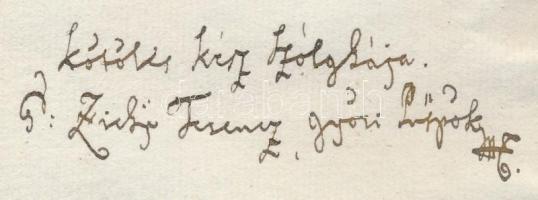 kötöles kész szólghája.
G: Zichÿ Ferencz győri Püspök